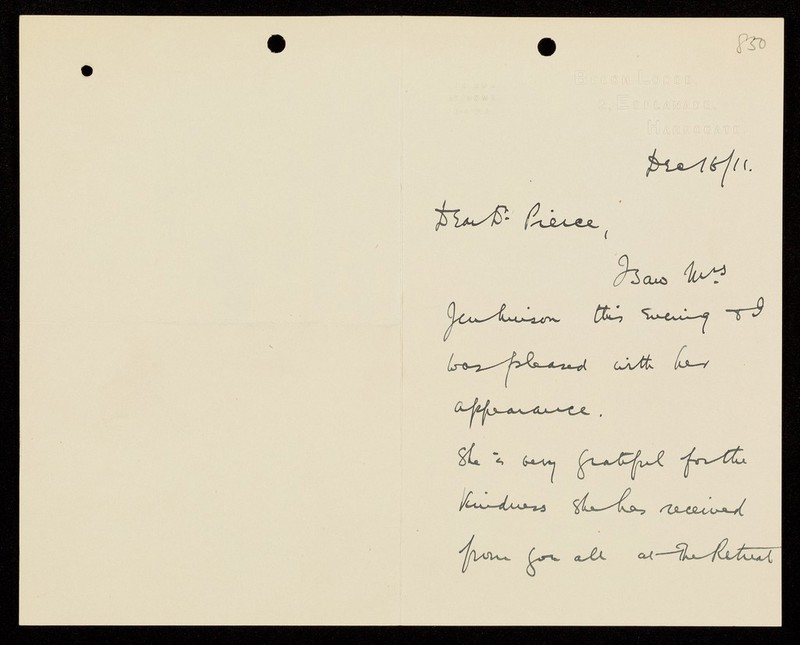 830
Harrogate.
Dec 16/11.
Dear Dr. Pierce,
I saw Mrs
Jenkinson this evening & I
was pleased with her
appearance.
She is very grateful for the
kindness she has received
from you all at The Retreat